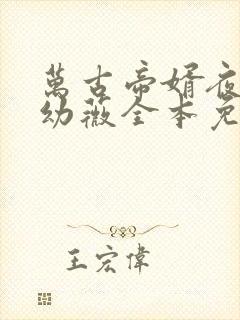 萬古帝婿夜
幼薇全本免
王宏偉